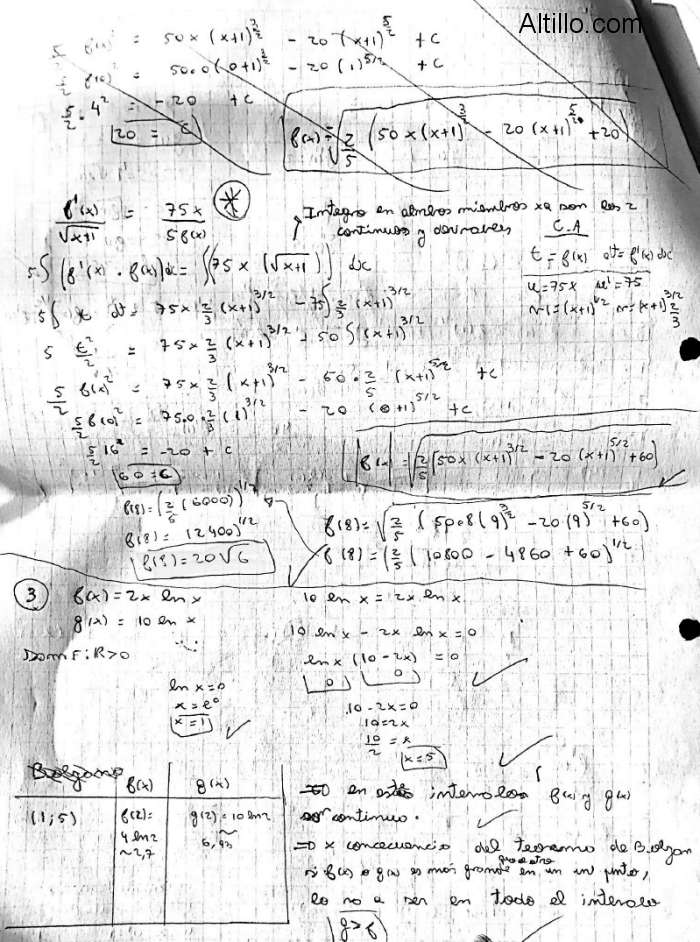 Altillo.com
5/2 f(x)² = 50x (x+1)^3/2 - 20 (x+1)^5/2 + C
5/2 f(0)² = 50.0 (0+1)^3/2 - 20 (1)^5/2 + C
5/2 . 4² = -20 + C
20 = C
f(x) = √(2/5 (50x (x+1)^3/2 - 20 (x+1)^5/2 + 20))
f'(x)/√x+1 = 75x/5f(x) *
Integro en ambos miembros xq son los 2
continuos y derivables
C.A
5∫(f'(x) . f(x))dx = ∫(75x (√x+1)) dx
t = f(x) dt = f'(x) dx
u = 75x u' = 75
5∫ t dt = 75x 2/3 (x+1)^3/2 - 75∫ 2/3 (x+1)^3/2
v' = (x+1)^1/2 v = (x+1)^3/2 2/3
5 t²/2 = 75x 2/3 (x+1)^3/2 - 50∫(x+1)^3/2
5/2 f(x)² = 75x 2/3 (x+1)^3/2 - 50 . 2/5 (x+1)^5/2 + C
5/2 f(0)² = 75.0 . 2/3 (1)^3/2 - 20 (0+1)^5/2 + C
5/2 16 = -20 + C
60 = C
f(x) = √(2/5 [50x (x+1)^3/2 - 20 (x+1)^5/2 + 60)
f(8) = √(2/5 (50.8 (9)^3/2 - 20 (9)^5/2 + 60)
f(8) = (2/5 (10800 - 4860 + 60)^1/2
f(8) = (2/5 (6000))^1/2
f(8) = (2400)^1/2
f(8) = 20√6
3
f(x) = 2x ln x
g(x) = 10 ln x
Dom F: R>0
10 ln x = 2x ln x
10 ln x - 2x ln x = 0
ln x (10 - 2x) = 0
0 0
ln x = 0
x = e⁰
x = 1
10 - 2x = 0
10 = 2x
10/2 = x
x = 5
Bolzano
f(x) g(x)
(1;5) f(2) = g(2) = 10 ln 2
4 ln 2 ~
~2,7 6,93
=> en estos intervalos f(x) y g(x)
son continuos.
=> x concecuencia del teorema de Bolzan
si f(x) o g(x) es más grande que otro en un punto,
lo va a ser en todo el intervalo
g>f